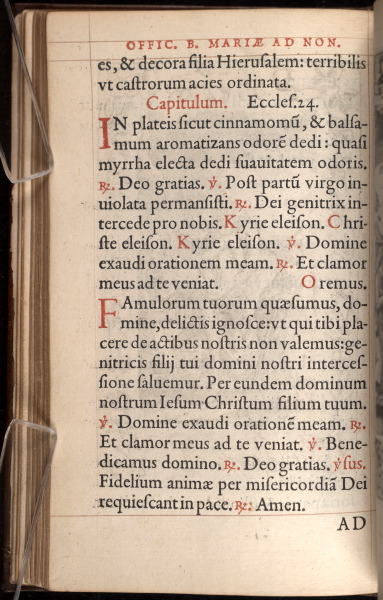 OFFIC. B. MARIÆ AD NON.
es, & decora filia Hierusalem: terribilis
vt castrorum acies ordinata.
Capitulum. Eccles.24.
IN plateis sicut cinnamomũ, & balsa-
mum aromatizans odorẽ dedi: quasi
myrrha electa dedi suauitatem odoris.
℟. Deo gratias. ℣. Post partũ virgo in-
uiolata permansisti. ℟. Dei genitrix in-
tercede pro nobis. Kyrie eleison. Chri-
ste eleison. Kyrie eleison. ℣. Domine
exaudi orationem meam. ℟. Et clamor
meus ad te veniat. Oremus.
FAmulorum tuorum quæsumus, do-
mine, delictis ignosce: vt qui tibi pla-
cere de actibus nostris non valemus: ge-
nitricis filij tui domini nostri interces-
sione saluemur. Per eundem dominum
nostrum Iesum Christum filium tuum.
℣. Domine exaudi orationẽ meam. ℟.
Et clamor meus ad te veniat. ℣. Bene-
dicamus domino. ℟. Deo gratias. ℣sus.
Fidelium animæ per misericordiã Dei
requiescant in pace. ℟: Amen.
AD